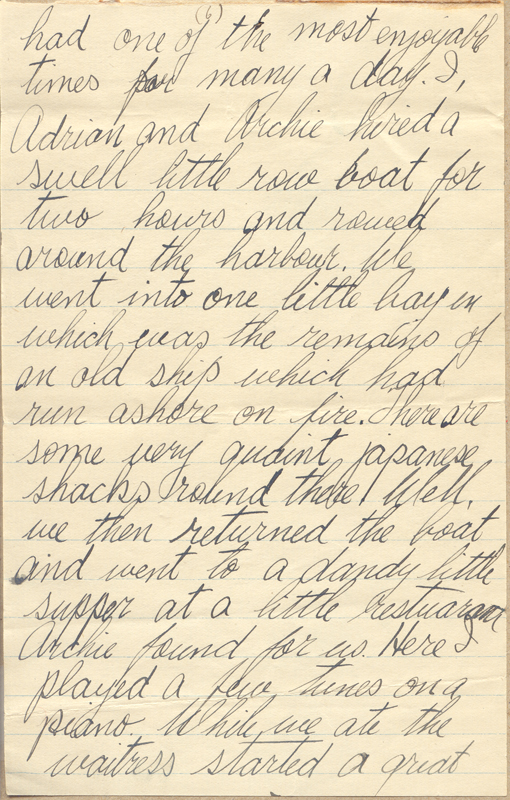 had one of the most enjoyable
times for many a day. I,
Adrian and Archie hired a
swell little row boat for
two hours and rowed
around the harbour. We
went into one little bay in
which was the remains of
an old ship which had
run ashore on fire. There are
some very quaint japanese
shacks round there! Well,
we then returned the boat
and went to a dandy little
supper at a little restuarant
Archie found for us. Here I
played a few tunes on a
piano. While we ate the
waitress started a great